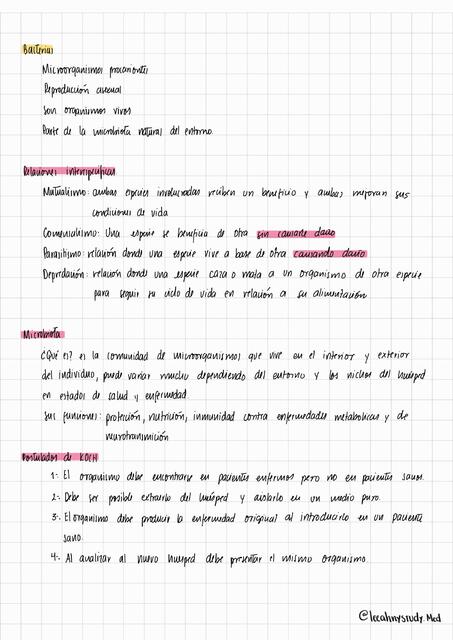 Bacterias
Microorganismos procariontes
Reproducción asexual
Son organismos vivos
Parte de la microbiota natural del entorno.
Relaciones interespecíficas
Mutualismo: ambas especies involucradas reciben un beneficio y ambas mejoran sus
condiciones de vida
Comensalismo: Una especie se beneficia de otra sin causarle daño
Parasitismo: relación donde una especie vive a base de otra causando daño
Depredación: relación donde una especie caza o mata a un organismo de otra especie
para seguir su ciclo de vida en relación a su alimentación
Microbiota
¿Qué es? es la comunidad de microorganismos que vive en el interior y exterior
del individuo, puede variar mucho dependiendo del entorno y los nichos del huésped
en estados de salud y enfermedad.
Sus funciones: protección, nutrición, inmunidad contra enfermedades metabólicas y de
neurotransmición
Postulados de KOCH
1-. El organismo debe encontrarse en pacientes enfermos pero no en pacientes sanos.
2-. Debe ser posible extraerlo del huésped y aislarlo en un medio puro.
3-. El organismo debe producir la enfermedad original al introducirlo en un paciente
sano.
4-. Al analizar al nuevo huésped debe presentar el mismo organismo.
@lecahnystudy.Med